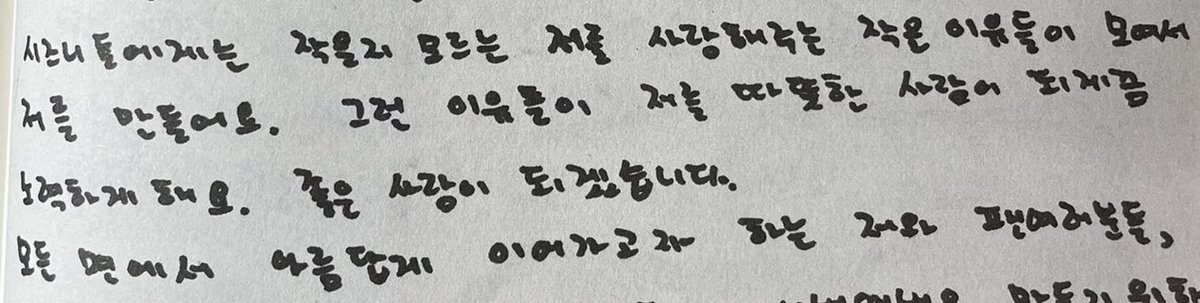 시즈니들에게는 작을지 모르는 저를 사랑해주는 작은 이유들이 모여서
저를 만들어요. 그런 이유들이 저를 따뜻한 사람이 되게끔
노력하게 해요. 좋은 사람이 되겠습니다.
모든 면에서 아름답게 이어가고자 하는 저와 팬여러분들,